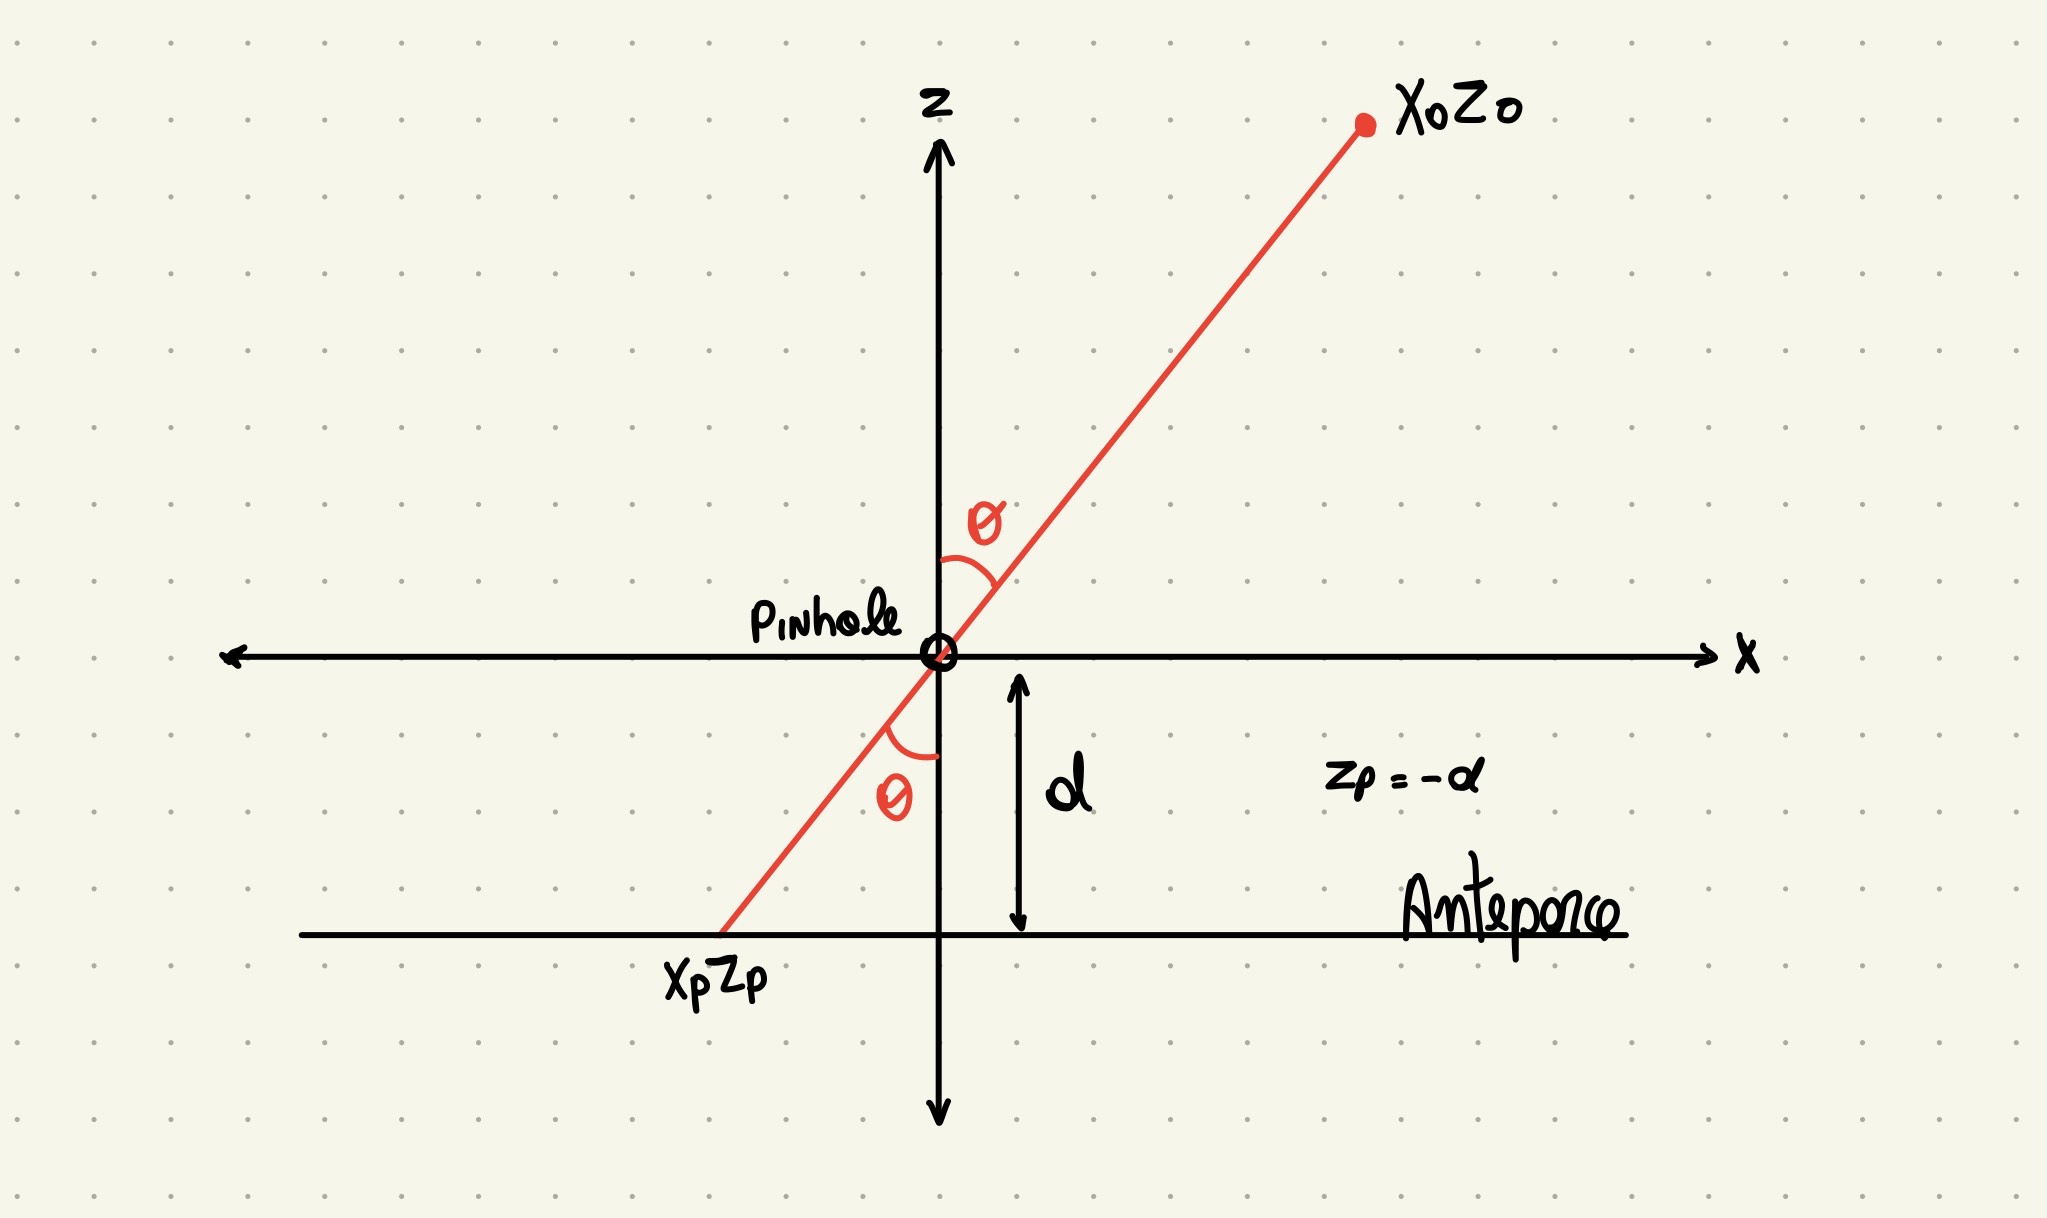 z
X₀Z₀
θ
Pinhole
x
d
θ
zp = -d
Anteporce
XpZp